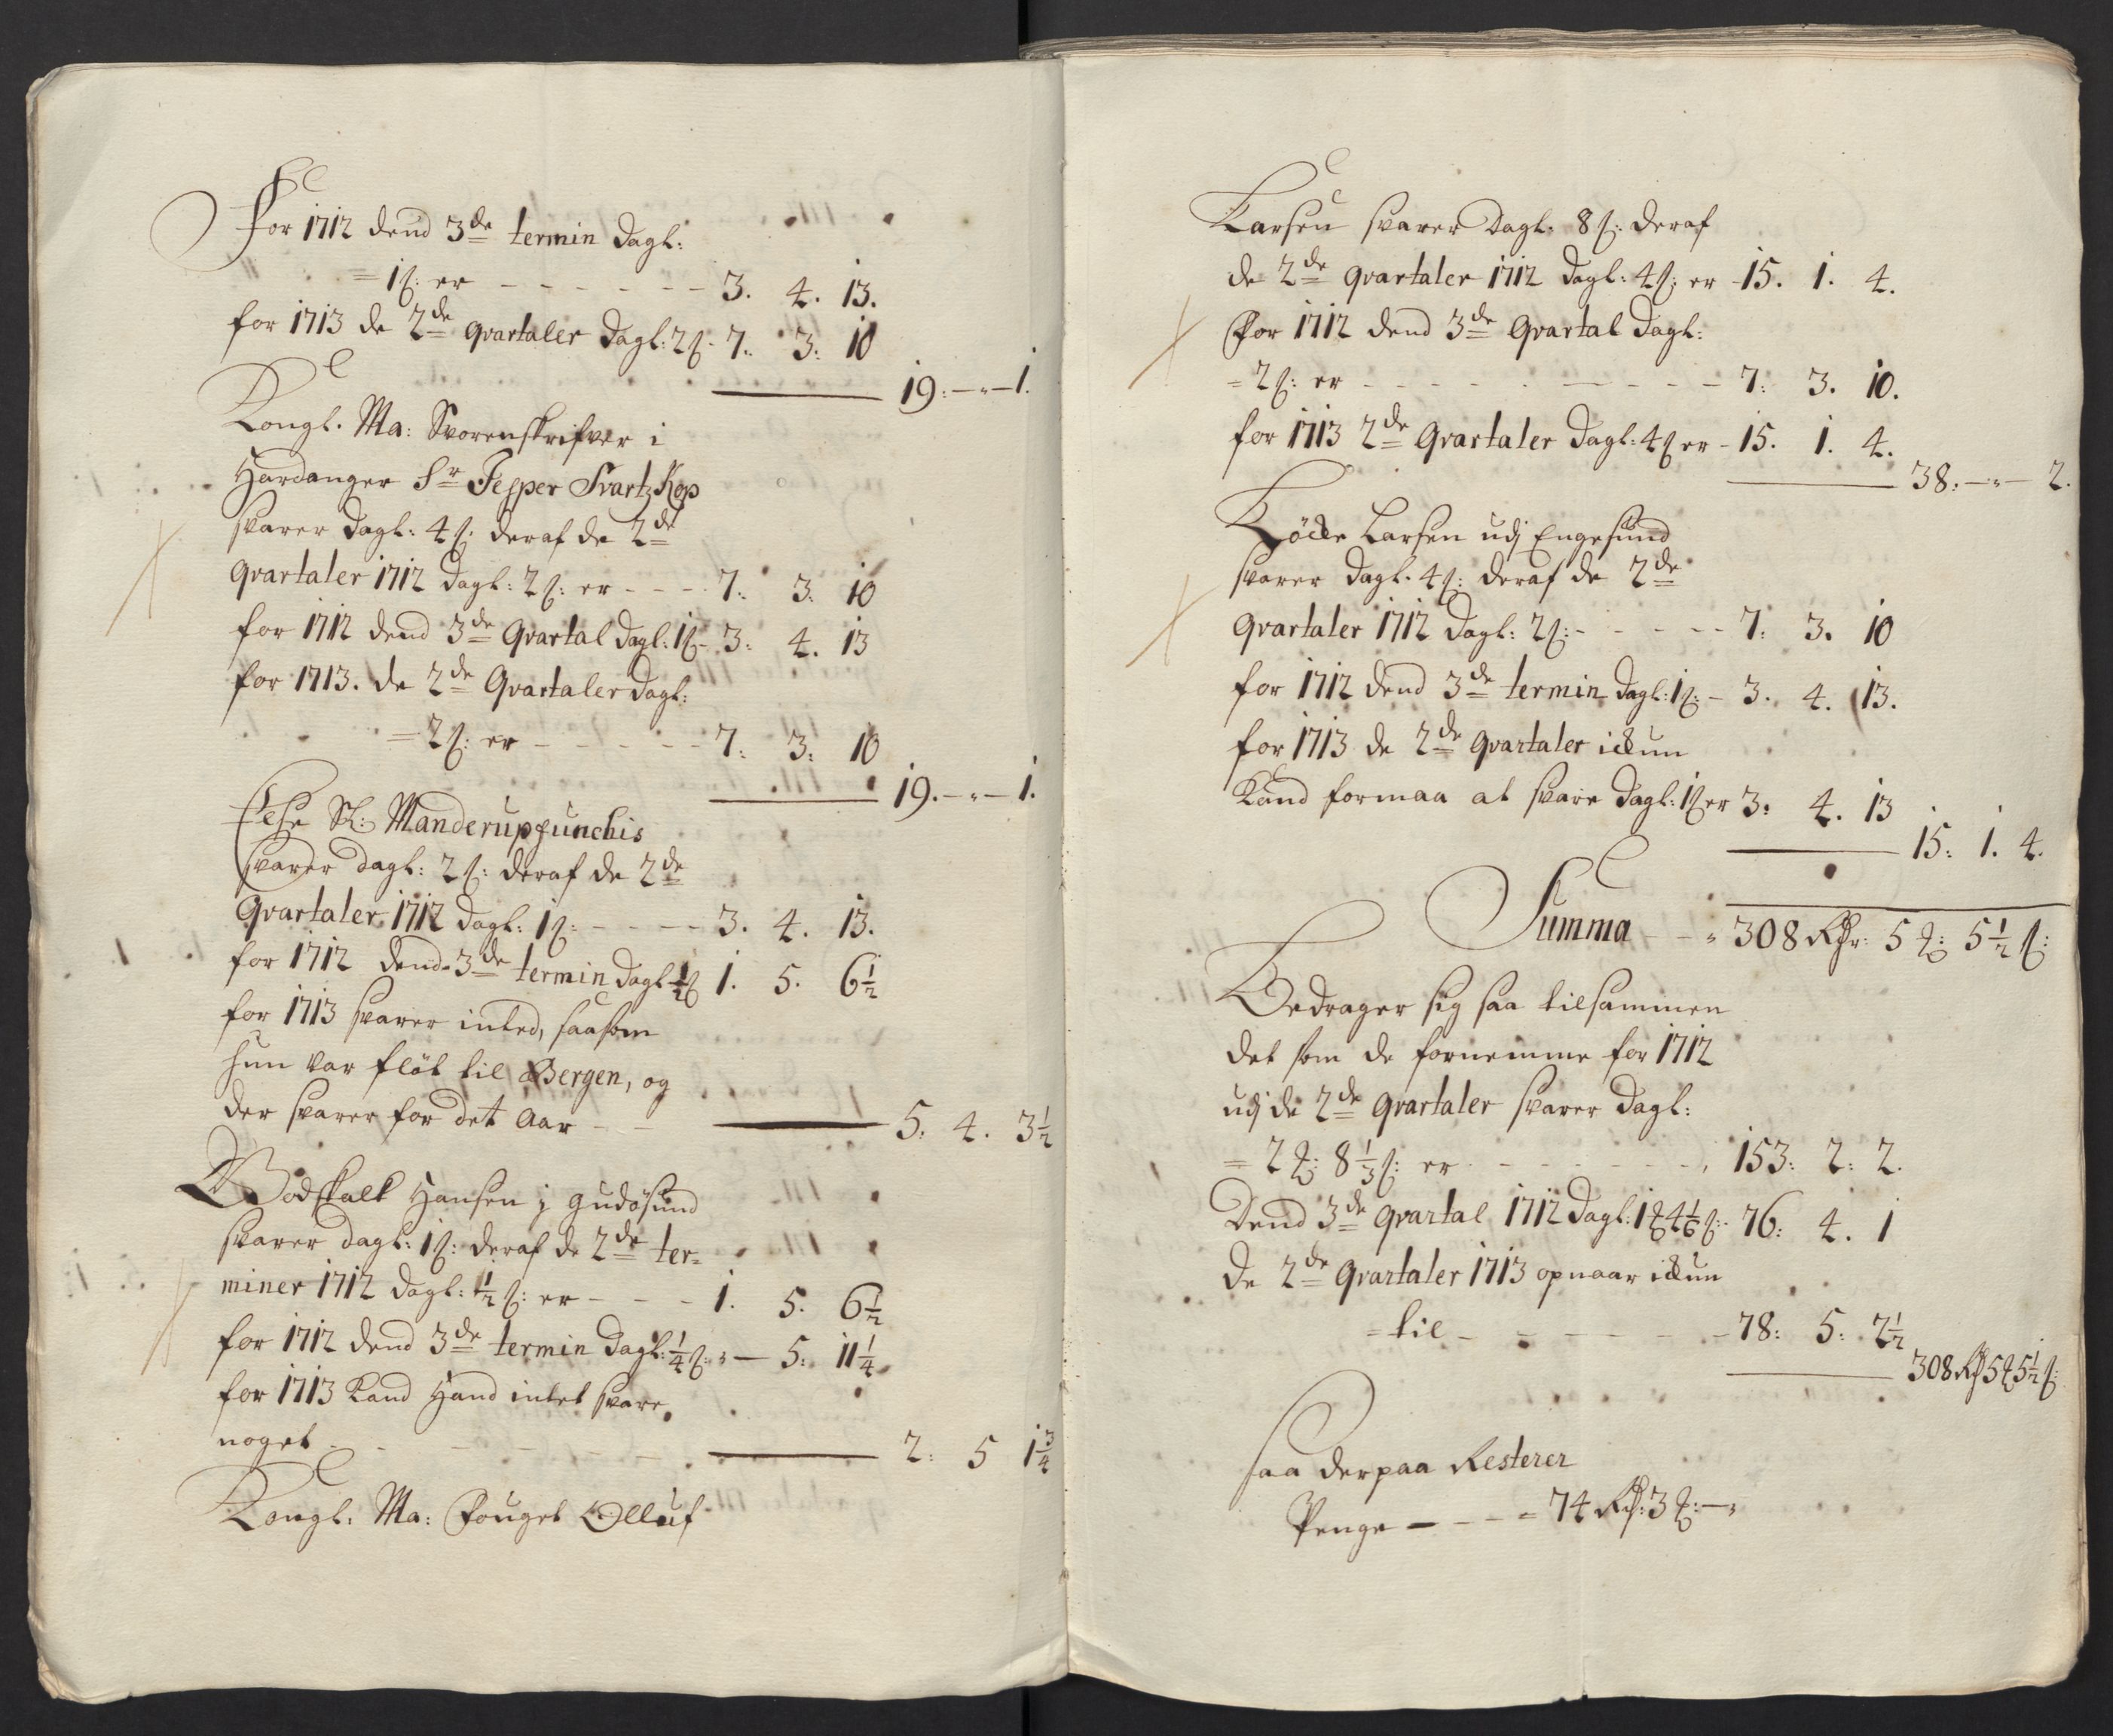 For 1712 dend 3de termin Dagl:
= 1 ß: er - - - - - - 3. 4. 13.
for 1713 de 2de qvartaler Dagl: 2 ß - 7. 3: 10
19: — " — 1.
Kongl. Ma: Svorenskrifver i
Hardanger Sr Jesper SvartzKop
svarer Dagl: 4 ß: deraf de 2de
qvartaler 1712 Dagl: 2 ß: er - - - 7: 3: 10
for 1712 dend 3de Qvartal Dagl: 1 ß - 3: 4. 13
for 1713. de 2de Qvartaler Dagl:
= 2 ß: er - - - - - 7: 3: 10
19. — " — 1.
Sl: Manderup
svarer Dagl: 2 ß: deraf de 2de
Qvartaler 1712 Dagl: 1 ß: - - - - 3. 4. 13.
for 1712 dend 3de termin Dagl ½ ß 1. 5. 6½
for 1713 svarer inted, saasom
hun var fløt til Bergen, og
der svarer for det Aar - - 5: 4. 3½
Godskalk Hansen j gudøsund
svarer dagl: 1 ß: deraf de 2de ter=
miner 1712 Dagl: ½ ß: er - - - 1. 5. 6½
for 1712 dend 3de termin Dagl: ¼ ß: " — 5: 11¼
for 1713 Kand Hand intet svare
noget - - - - - - 2: 5 1¾
Kongl: Ma: Fouget Olluf
Larsen svarer Dagl. 8 ß: deraf
de 2de qvartaler 1712 Dagl: 4 ß: er - 15. 1. 4.
For 1712 dend 3de Qvartal Dagl:
= 2 ß: er - - - - - - - - 7: 3. 10.
for 1713 2de Qvartaler Dagl: 4 ß er - 15. 1. 4.
38: — " — 2.
Larsen udj Engesund
svarer Dagl. 4 ß: deraf de 2de
qvartaler 1712 Dagl: 2 ß: - - - - 7: 3. 10
for 1712 dend 3de termin Dagl: 1 ß: - 3. 4. 13.
for 1713 de 2de qvartaler ickun
Kand formaa at svare Dagl: 1 ß er 3: 4. 13
15: 1. 4.
Summa - - " 308 Rdr: 5 ₰: 5½ ß:
Bedrager sig saa tilsammen
det som de fornemme for 1712
udj de 2de qvartaler svarer Dagl:
= 2 ₰: 8⅓ ß: er - - - - - - 153: 2: 2.
Dend 3de qvartal 1712 Dagl: 1 ₰ 4⅙ ß: - 76: 4. 1
De 2de Qvartaler 1713 opnaar ickun
= til - - - - - - 78: 5: 2½
308 Rd 5 ₰ 5½ ß:
saa derpaa Resterer
Penge - - - = 74 Rd: 3 ₰: — "